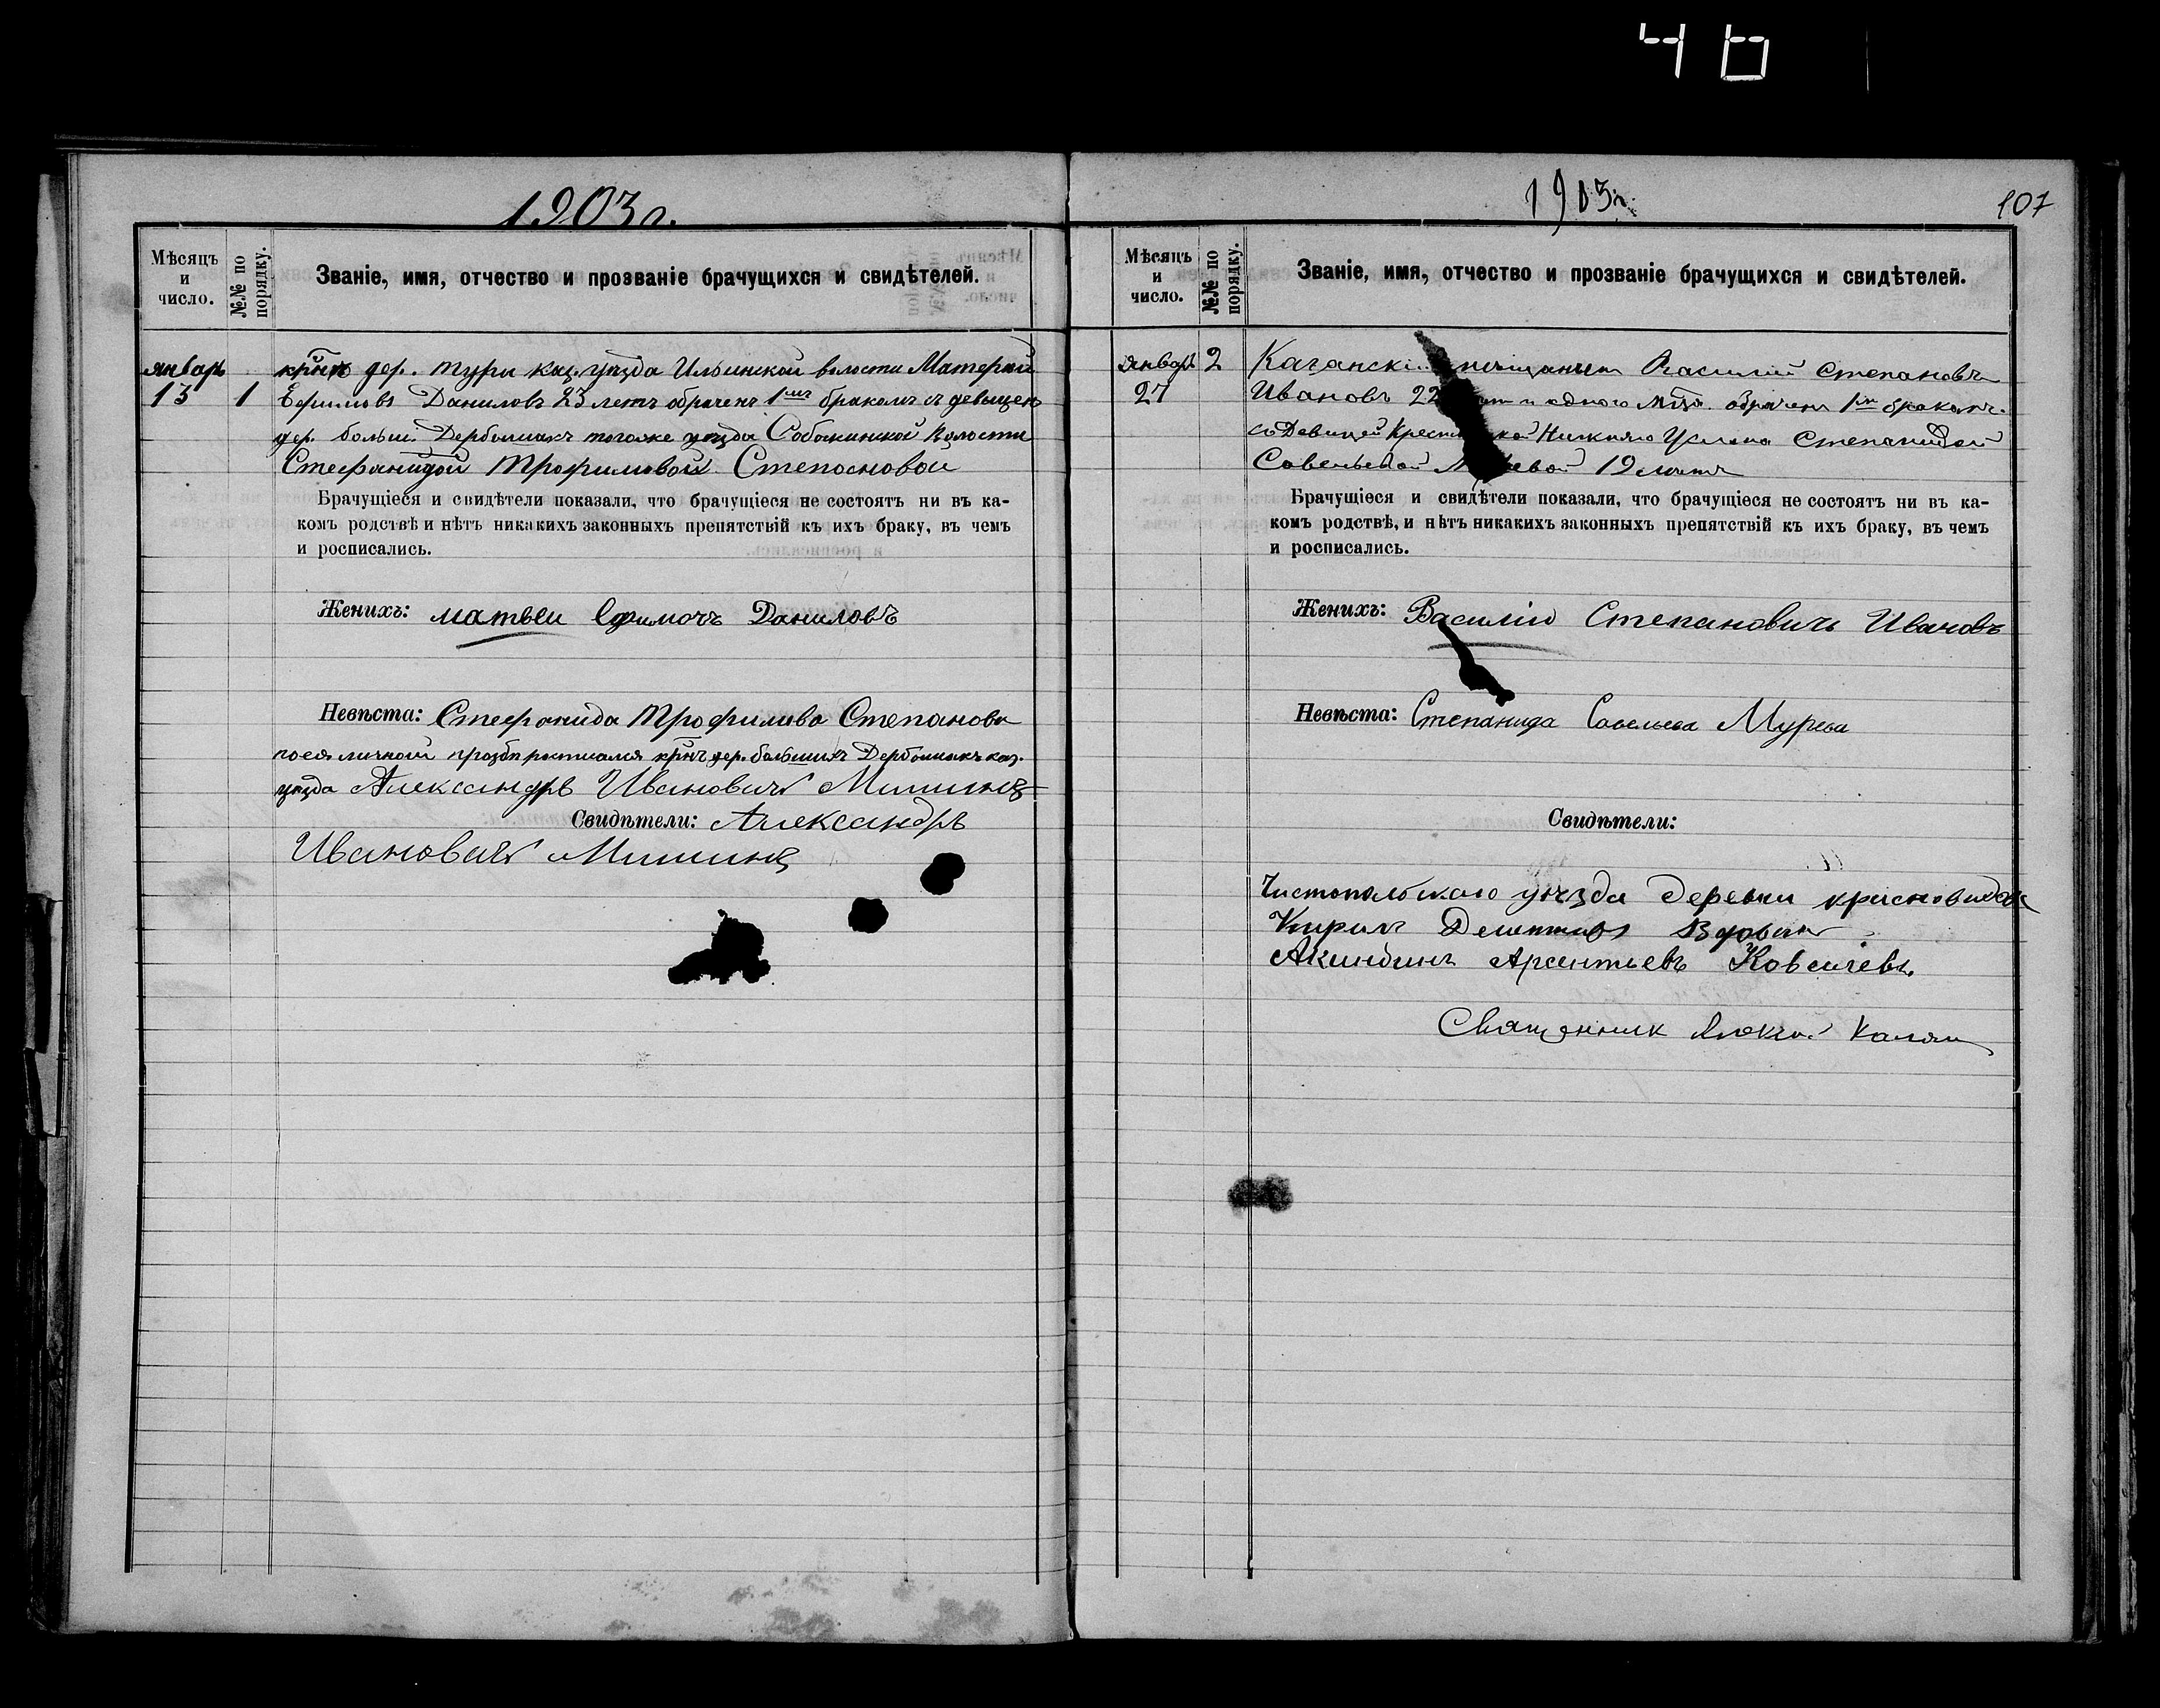 40
1903 г.
Мѣсяцъ
и
число.
№№ по
порядку.
Званіе, имя, отчество и прозваніе брачущихся и свидѣтелей.
январь
13
1
крнъ дер. Туры каз. уѣзда Ильинской волости Матвей
Ефимовъ Даниловъ 23 летъ обраченъ 1мъ бракомъ съ девицею
дер. больш. Дербышкахъ тогоже уезда Собакинской волости
Стефанидой Трофимовой Степановой
Брачущіеся и свидѣтели показали, что брачущіеся не состоятъ ни въ ка-
комъ родствѣ и нѣтъ никакихъ законныхъ препятствій къ ихъ браку, въ чемъ
и росписались.
Женихъ: матвеи Ефимочъ Даниловъ
Невѣста: Стефанида Трофимова Степанова
поея личной прозбѣ росписался крнъ дер. большихъ Дербышкахъ каз.
уезда Александръ Ивановичъ Мишинъ
Свидѣтели: Александръ
Ивановичъ Мишинъ
1903 г.
107
Мѣсяцъ
и
число.
№№ по
порядку.
Званіе, имя, отчество и прозваніе брачущихся и свидѣтелей.
Январь
27
2
Казанскій мещанинъ Василий Степановъ
Ивановъ 22 и одного обраченъ 1мъ бракомъ
съ Девицей Нижняго Услона Степанидой
Савельевой 19 летъ
Брачущіеся и свидѣтели показали, что брачущіеся не состоятъ ни въ ка-
комъ родствѣ, и нѣтъ никакихъ законныхъ препятствій къ ихъ браку, въ чемъ
и росписались.
Женихъ: Василій Степановичъ Ивановъ
Невѣста: Степанида Савельева Мурева
Свидѣтели:
Чистопольскаго уезда деревни
Кирилъ
Акиндинъ Арсентьевъ
Священник